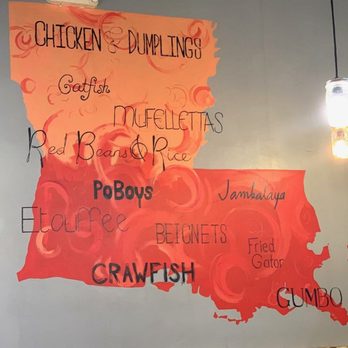 CHICKEN & DUMPLINGS
Catfish
MUFELLETTAS
Red Beans & Rice
PoBoys
Jambalaya
Etouffee
BEIGNETS
Fried
Gator
CRAWFISH
GUMBO